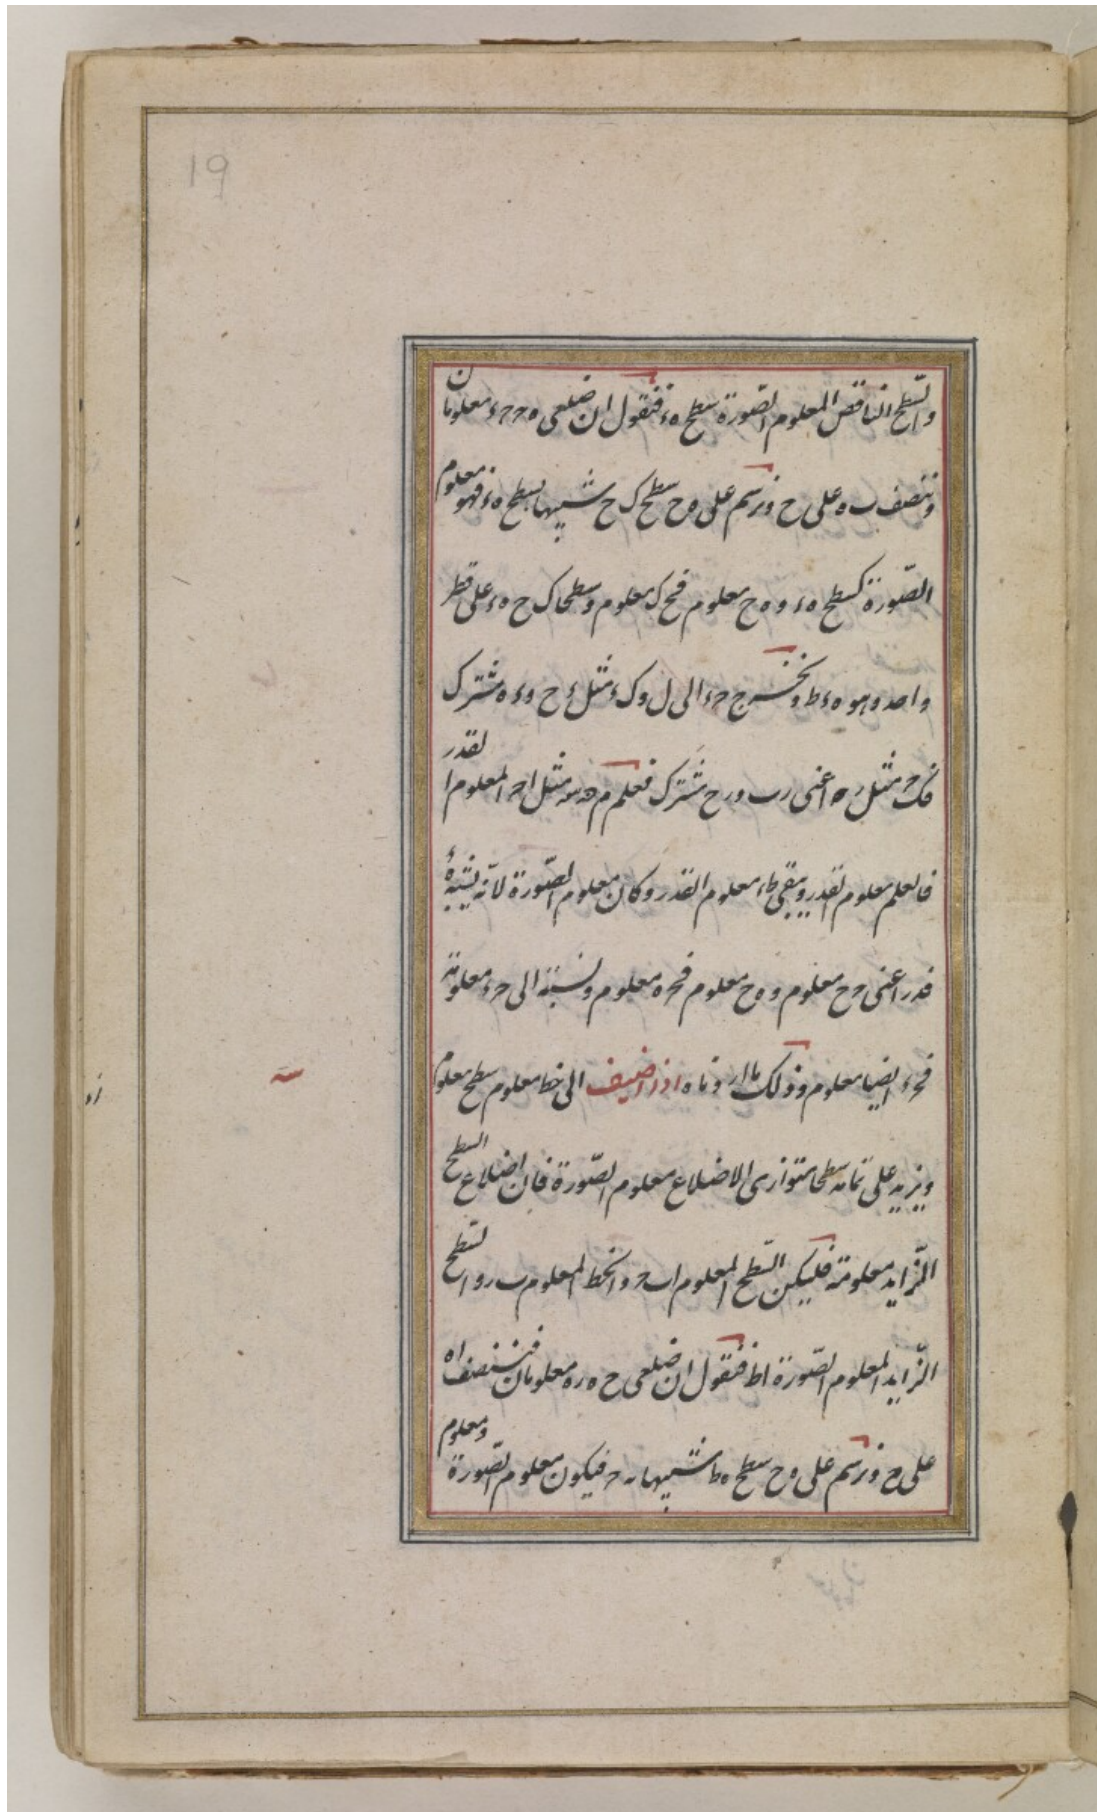 19
والسّطح الناقص المعلوم الصّورة سطح ه ء فنقول ان ضلعى ه ح ح ء معلومان
وننصف ب ه على ح ونرسم على ه ح سطح ك ح شبيها بسطح ه ء فهو معلوم
الصّورة كسطح ه ء و ه ح معلوم فح ك معلوم وسطحا ك ح ه ء على قطر
واحد وهو ه ء ط ونخرج ح ء الى ل و ك ء مثل ء ح و ء ه مشترك
مثل ر ه اعنى ر ب و ر ح مشترك فعلم مثل ا ح المعلوم القدر
فالعلم معلوم القدر ويبقى ط ء معلوم القدر وكان معلوم الصّورة لانّه يشبه ه ء
اعنى ح ح معلوم و ه ح معلوم فح ه معلوم ونسبته الى ح ء معلومة
فح ء ايضا معلوم وذلك ما اردناه اذا اضيف الى خط معلوم سطح معلوم
ويزيد على تمامه سطحا متوازى الاضلاع معلوم الصّورة فان اضلاع السطح
الزّايد معلومة فليكن السّطح المعلوم ا ب ح والخط المعلوم ب ر والسّطح
الزّايد المعلوم الصّورة ا ط فنقول ان ضلعى ح ه ر ه معلومان فننصف ا ه
على ح ونرسم على ه ح سطح ه ط شبيها فيكون معلوم الصّورة ومعلوم